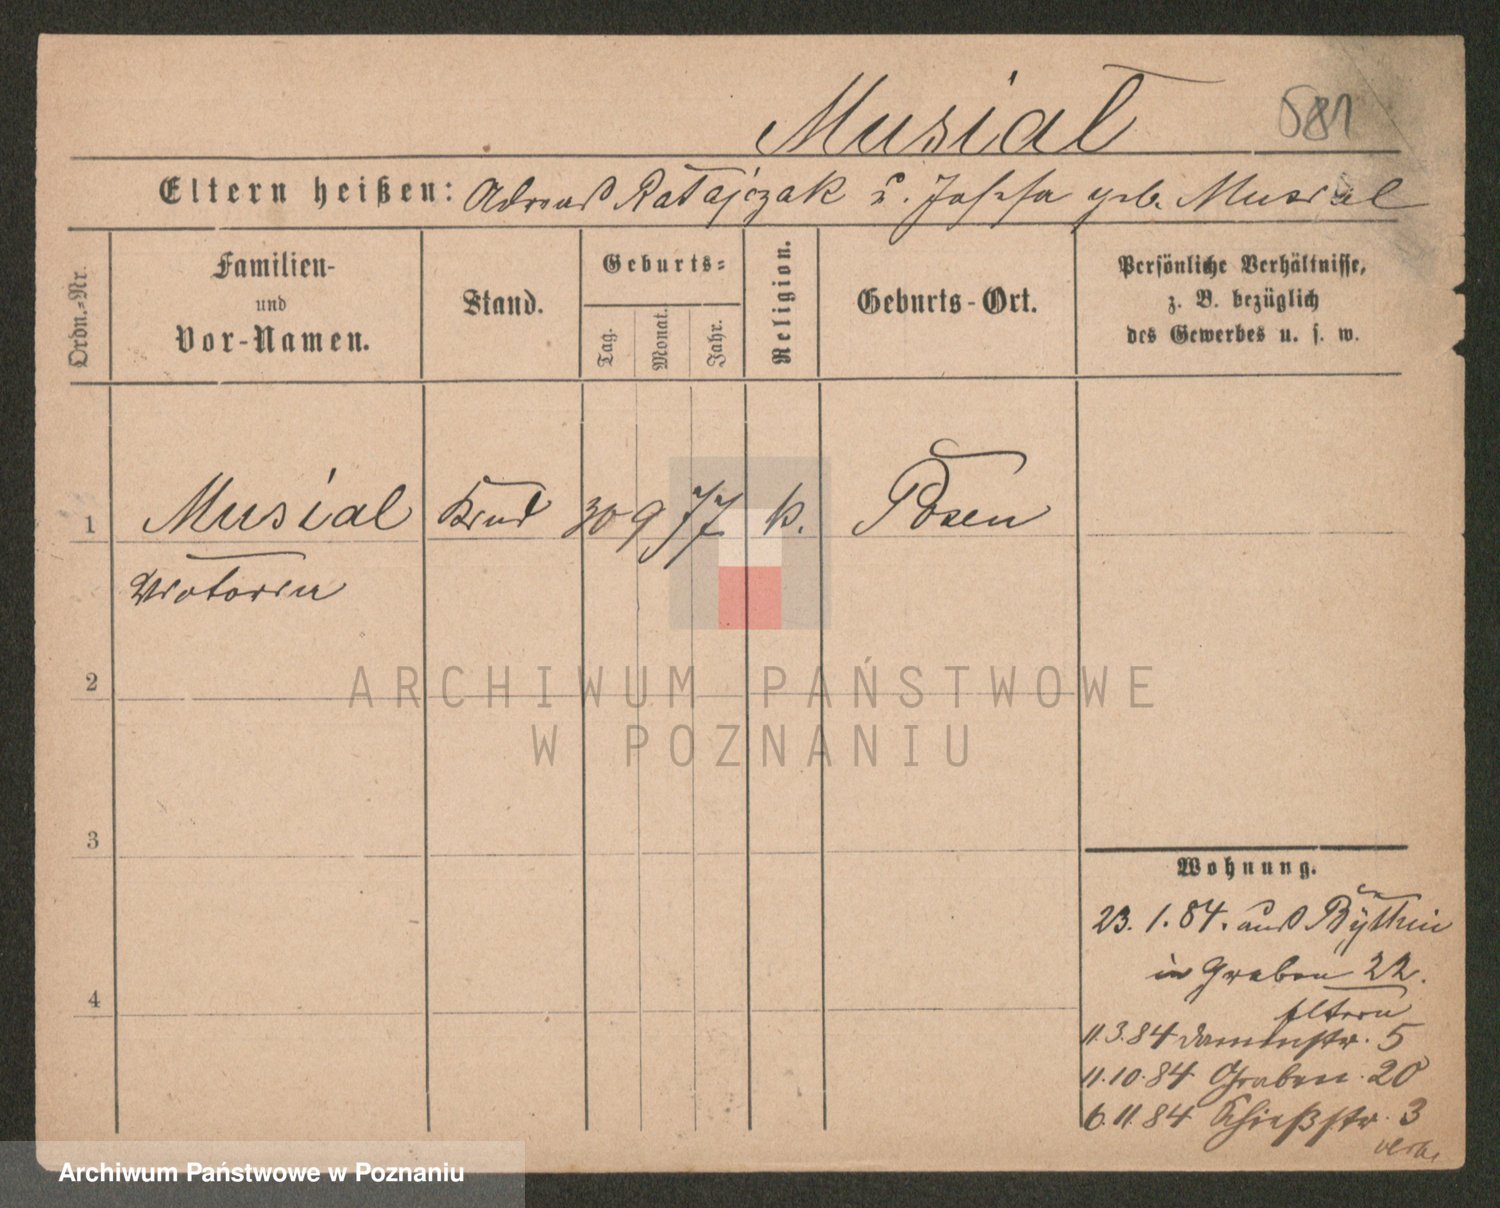 Musial 581
Eltern heißen: Andreas Ratajczak u. Josefa geb. Musial
Ordn.-Nr.
Familien-
und
Vor-Namen.
Stand.
Geburts-
Tag.
Monat.
Jahr.
Religion.
Geburts-Ort.
Persönliche Verhältnisse,
z. B. bezüglich
des Gewerbes u. s. w.
1 Musial Kind 30 9 77 k. Posen
Victoria
2
3
4
Wohnung.
23. 1. 84. aus Bythin
in Graben 22.
Eltern
11.3.84 Dammstr. 5
11.10.84 Graben 20
6.11.84 Schießstr. 3
ARCHIWUM PAŃSTWOWE
W POZNANIU
Archiwum Państwowe w Poznaniu